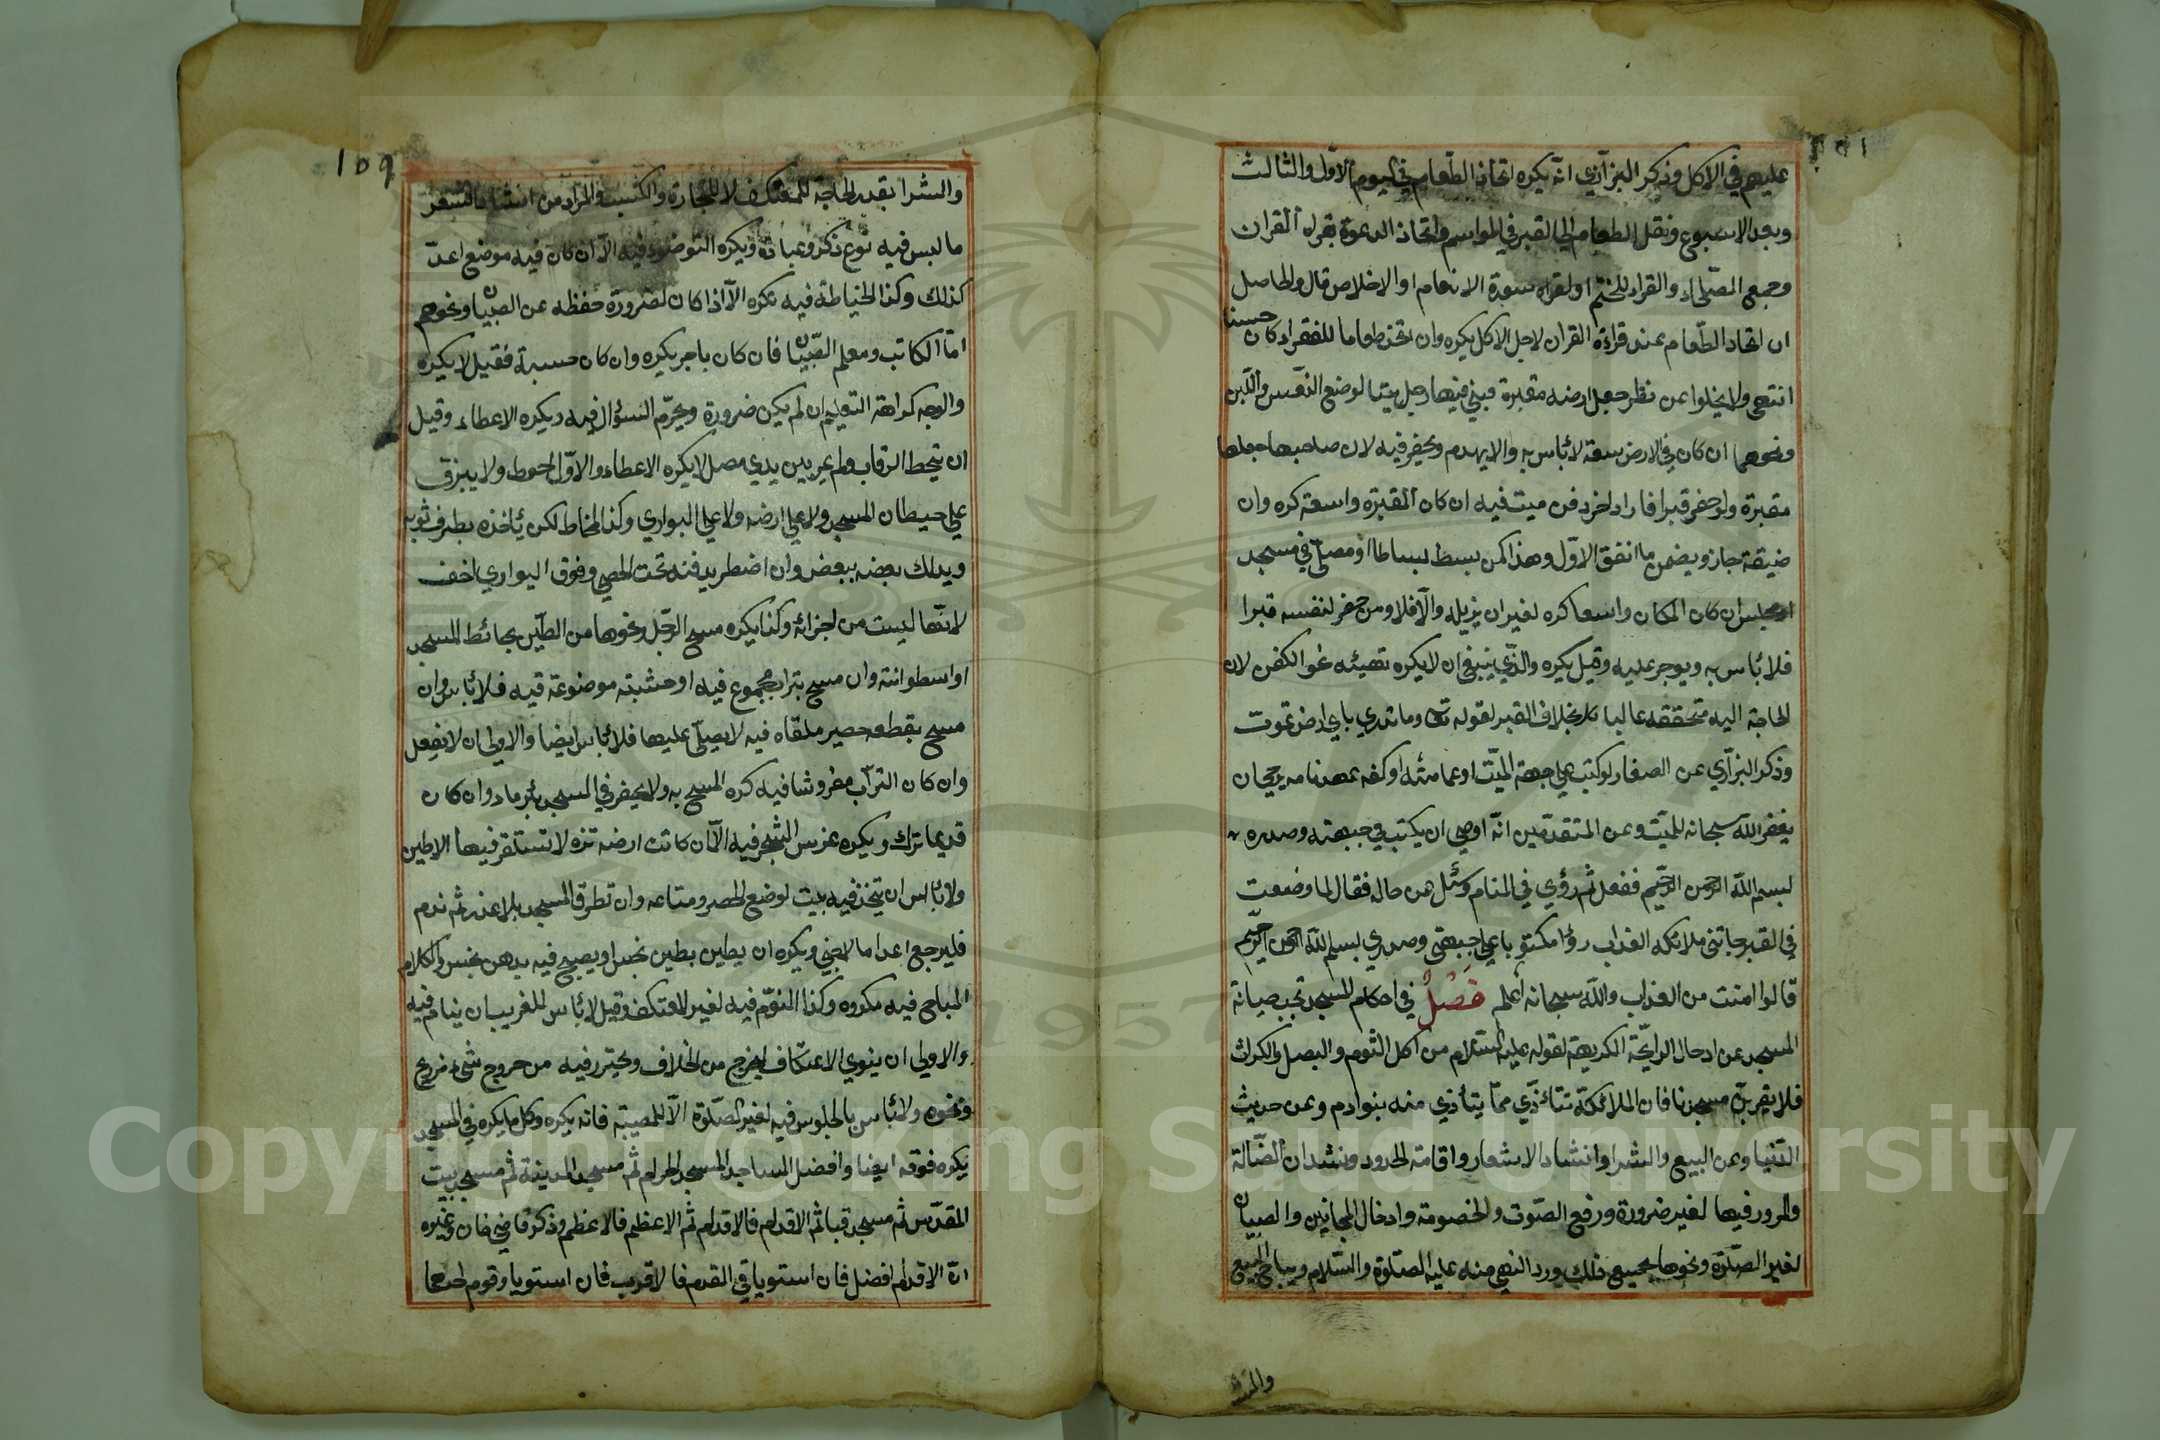 عليهم في الاكل وذكر البزازي انه يكره اتخاذ الطعام في اليوم الاول والثالث
وبعد الاسبوع ونقل الطعام الى القبر في المواسم واتخاذ الدعوة بقراه القران
وجمع الصلحاء والقراء للختم او لقراه سورة الانعام او الاخلاص قال والحاصل
ان اتخاذ الطعام عند قراءة القران لاجل الاكل يكره وان اتخذ طعاما للفقراء كان حسنا
انتهى ولا يخلوا عن نظر جعل ارضه مقبرة فبني فيها رجل بيتا لوضع النعش واللبن
ونحوهما ان كان في الارض سعة لا بأس به والا يهدم ويحفر فيه لان صاحبها جعلها
مقبرة ولو حفر قبرا فاراد اخر دفن ميت فيه ان كان المقبرة واسعة كره وان
ضيقة جاز ويضمن ما انفق الاول وهذا كمن بسط بساطا او مصلى في مسجد
او مجلس ان كان المكان واسعا كره لغير ان يزيله والا فلا ومن حفر لنفسه قبرا
فلا بأس به ويوجر عليه وقيل يكره والذي ينبغي ان لا يكره تهيئه نحو الكفن لان
الحاجة اليه متحققه غالبا بخلاف القبر لقوله تعالى وما تدري باي ارض تموت
وذكر البزازي عن الصفار لو كتب على جبهة الميت او عمامته او كفنه عهدنامه يرجى ان
يغفر الله سبحانه للميت وعن المتقدمين انه اوصى ان يكتب في جبهته وصدره
بسم الله الرحمن الرحيم ففعل ثم رؤي في المنام وسئل عن حاله فقال لما وضعت
في القبر جاتني ملائكه العذاب رؤا مكتوبا على جبهتي وصدري بسم الله الرحمن الرحيم
قالوا امنت من العذاب والله سبحانه اعلم فصل في احكام المسجد تجب صيانة
المسجد عن ادخال الرايحة الكريهة لقوله عليه السلام من اكل الثوم والبصل والكراث
فلا يقربن مسجدنا فان الملائكة تتأذي مما يتأذي منه بنوادم وعن حديث
الدنيا وعن البيع والشرا وانشاد الاشعار واقامة الحدود ونشدان الضالة
والمرور فيها لغير ضرورة ورفع الصوت والخصومة وادخال المجانين والصبيان
لغير الصلوة ونحوها بجميع ذلك ورد النهي منه عليه الصلوة والسلام ويباح البيع
والشر
159
والشرا بقدر الحاجة للمعتكف لا للتجارة والكسب والمراد من انشاد الشعر
ما ليس فيه نوع ذكر وعبادة ويكره التوضوء فيه الا ان كان فيه موضع اعد
كذلك وكذا الخياطة فيه تكره الا اذا كان لضرورة حفظه عن الصبيان ونحوهم
اما الكاتب ومعلم الصبيان فان كان باجر يكره وان كان حسبة فقيل لا يكره
والوجه كراهة التعليم ان لم يكن ضرورة ويحرم السؤال فيه ويكره الاعطاء وقيل
ان يتخط الرقاب ولم يمر بين يدي مصل لا يكره الاعطاء والاول احوط ولا يبزق
على حيطان المسجد ولا على ارضه ولا على البواري وكذا المخاط لكن يأخذه بطرف ثوبه
ويدلك بعضه ببعض وان اضطر يدفنه تحت الحصى وفوق البواري اخف
لانها ليست من اجزائه وكذا يكره مسح الرجل ونحوها من الطين بحائط المسجد
او اسطوانته وان مسح بتراب مجموع فيه او خشبته موضوعة فيه فلا بأس وان
مسح بقطعه حصير ملقاه فيه لا يصلى عليها فلا بأس ايضا والاولى ان لا يفعل
وان كان التراب مفروشا فيه كره المسح به ولا يحفر في المسجد بئر ماء وان كان
قديما ترك ويكره غرس الشجر فيه الا ان كانت ارضه نزه لا تستقر فيها الاطين
ولا بأس ان يتخذ فيه بيت لوضع الحصر ومتاعه وان تطرق المسجد بلا عذر ثم ندم
فليرجع اعداما لا يجني ويكره ان يطين بطين نجس او يصبح فيه بدهن نجس والكلام
المباح فيه مكروه وكذا النوم فيه لغير المعتكف وقيل لا بأس للغريب ان ينام فيه
والاولى ان ينوي الاعتكاف ليخرج من الخلاف ويحترز فيه من خروج شيء من ريح
ونحوه ولا بأس بالجلوس فيه لغير الصلوة الا للمصيبة فانه يكره وكل ما يكره في المسجد
يكره فوقه ايضا وافضل المساجد المسجد الحرام ثم مسجد المدينة ثم مسجد بيت
المقدس ثم مسجد قبا ثم الاقدم فالاقدم ثم الاعظم فالاعظم وذكر قاضيخان وغيره
ان الاقدم افضل فان استويا في القدم فالاقرب فان استويا وقوم احدهما
Copyright © King Saud University
1957